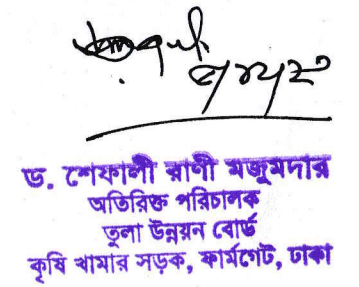 ড. শেফালী রাণী মজুমদার
অতিরিক্ত পরিচালক
তুলা উন্নয়ন বোর্ড
কৃষি খামার সড়ক, ফার্মগেট, ঢাকা